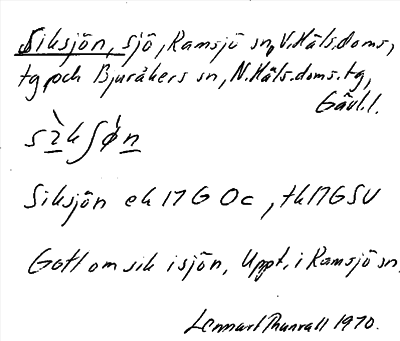 Siksjön, sjö, Ramsjö sn, V. Häls. doms,
tg och Bjuråkers sn, N. Häls. doms. tg,
Gävl. l.
Siksjön ek 17 G Oc, tk 17G SV
Gott om sik i sjön, Uppt. i Ramsjö sn.
Lennart 1970.